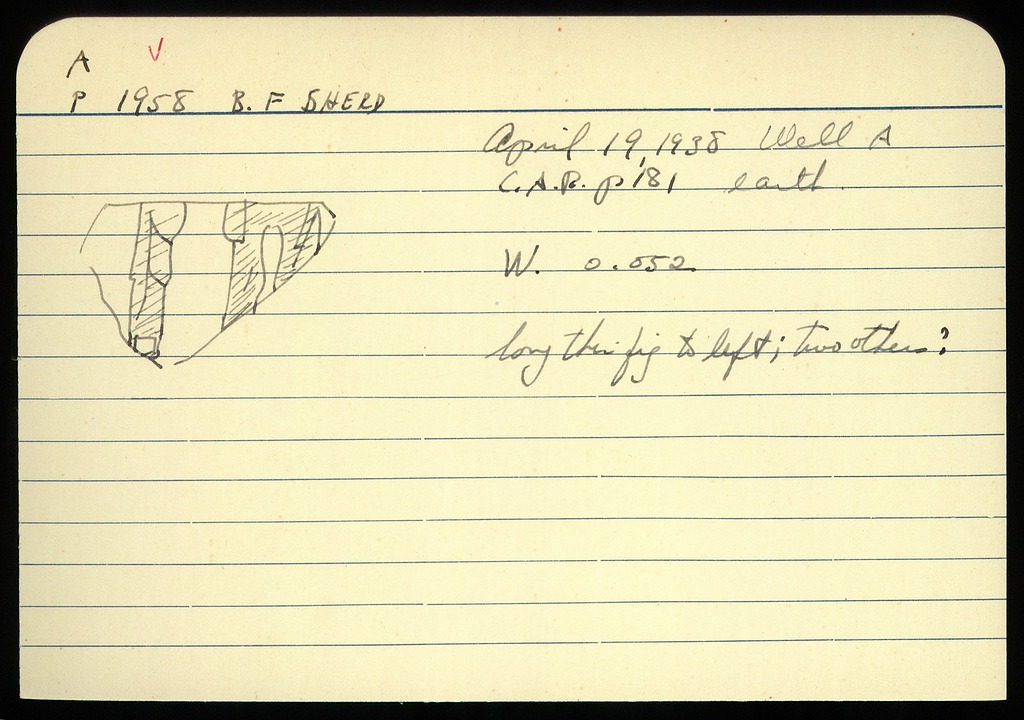 A ✓
P 1958 B. F SHERD
April 19, 1938 Well A
C.A.R. p 181 earth
W. 0.052
long thin fig to left; two others?